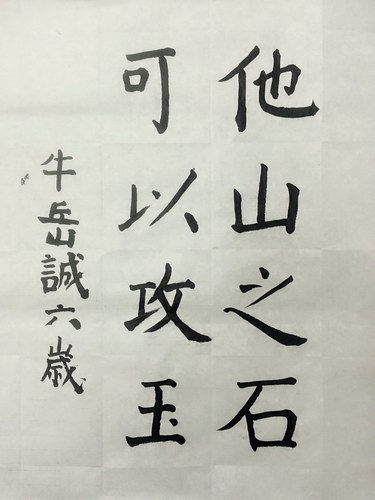 他山之石
可以攻玉
牛岳誠六歳